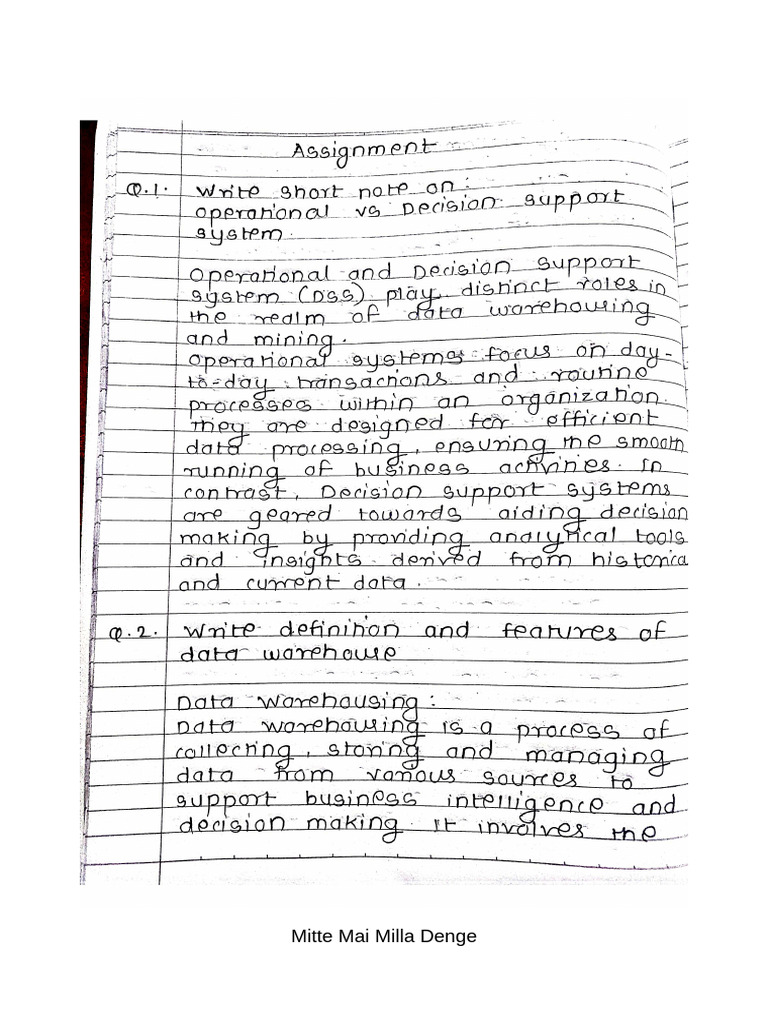 Assignment
Q.1. Write short note on :
operational vs Decision support
system.
Operational and Decision Support
System (DSS) play distinct roles in
the realm of data warehousing
and mining.
Operational systems focus on day-
to-day transactions and routine
processes within an organization.
They are designed for efficient
data processing, ensuring the smooth
running of business activities. In
contrast, Decision support systems
are geared towards aiding decision
making by providing analytical tools
and insights derived from historica
and current data.
Q.2. Write definition and features of
data warehouse
Data Warehousing :
Data warehousing is a process of
collecting, storing and managing
data from various sources to
support business intelligence and
decision making. It involves the
Mitte Mai Milla Denge